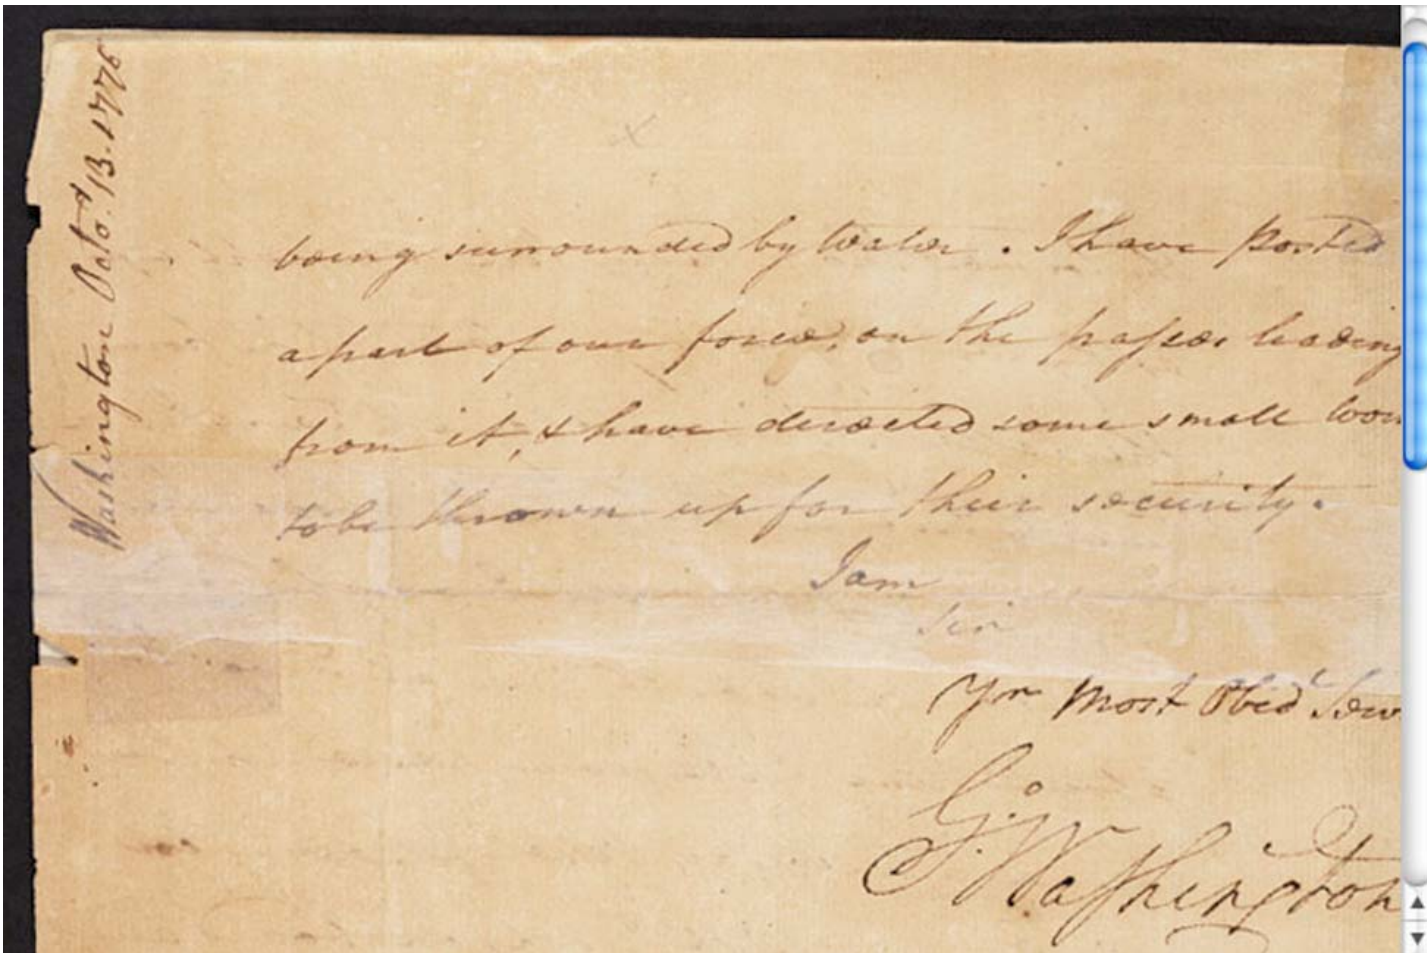 Washington Octo.r 13. 1776
being surrounded by Water. I have posted
a part of our force, on the passes leading
from it, & have directed some small wor
to be thrown up for their security.
I am
Sir
Yr most Obed.t Serv
G.o Washington